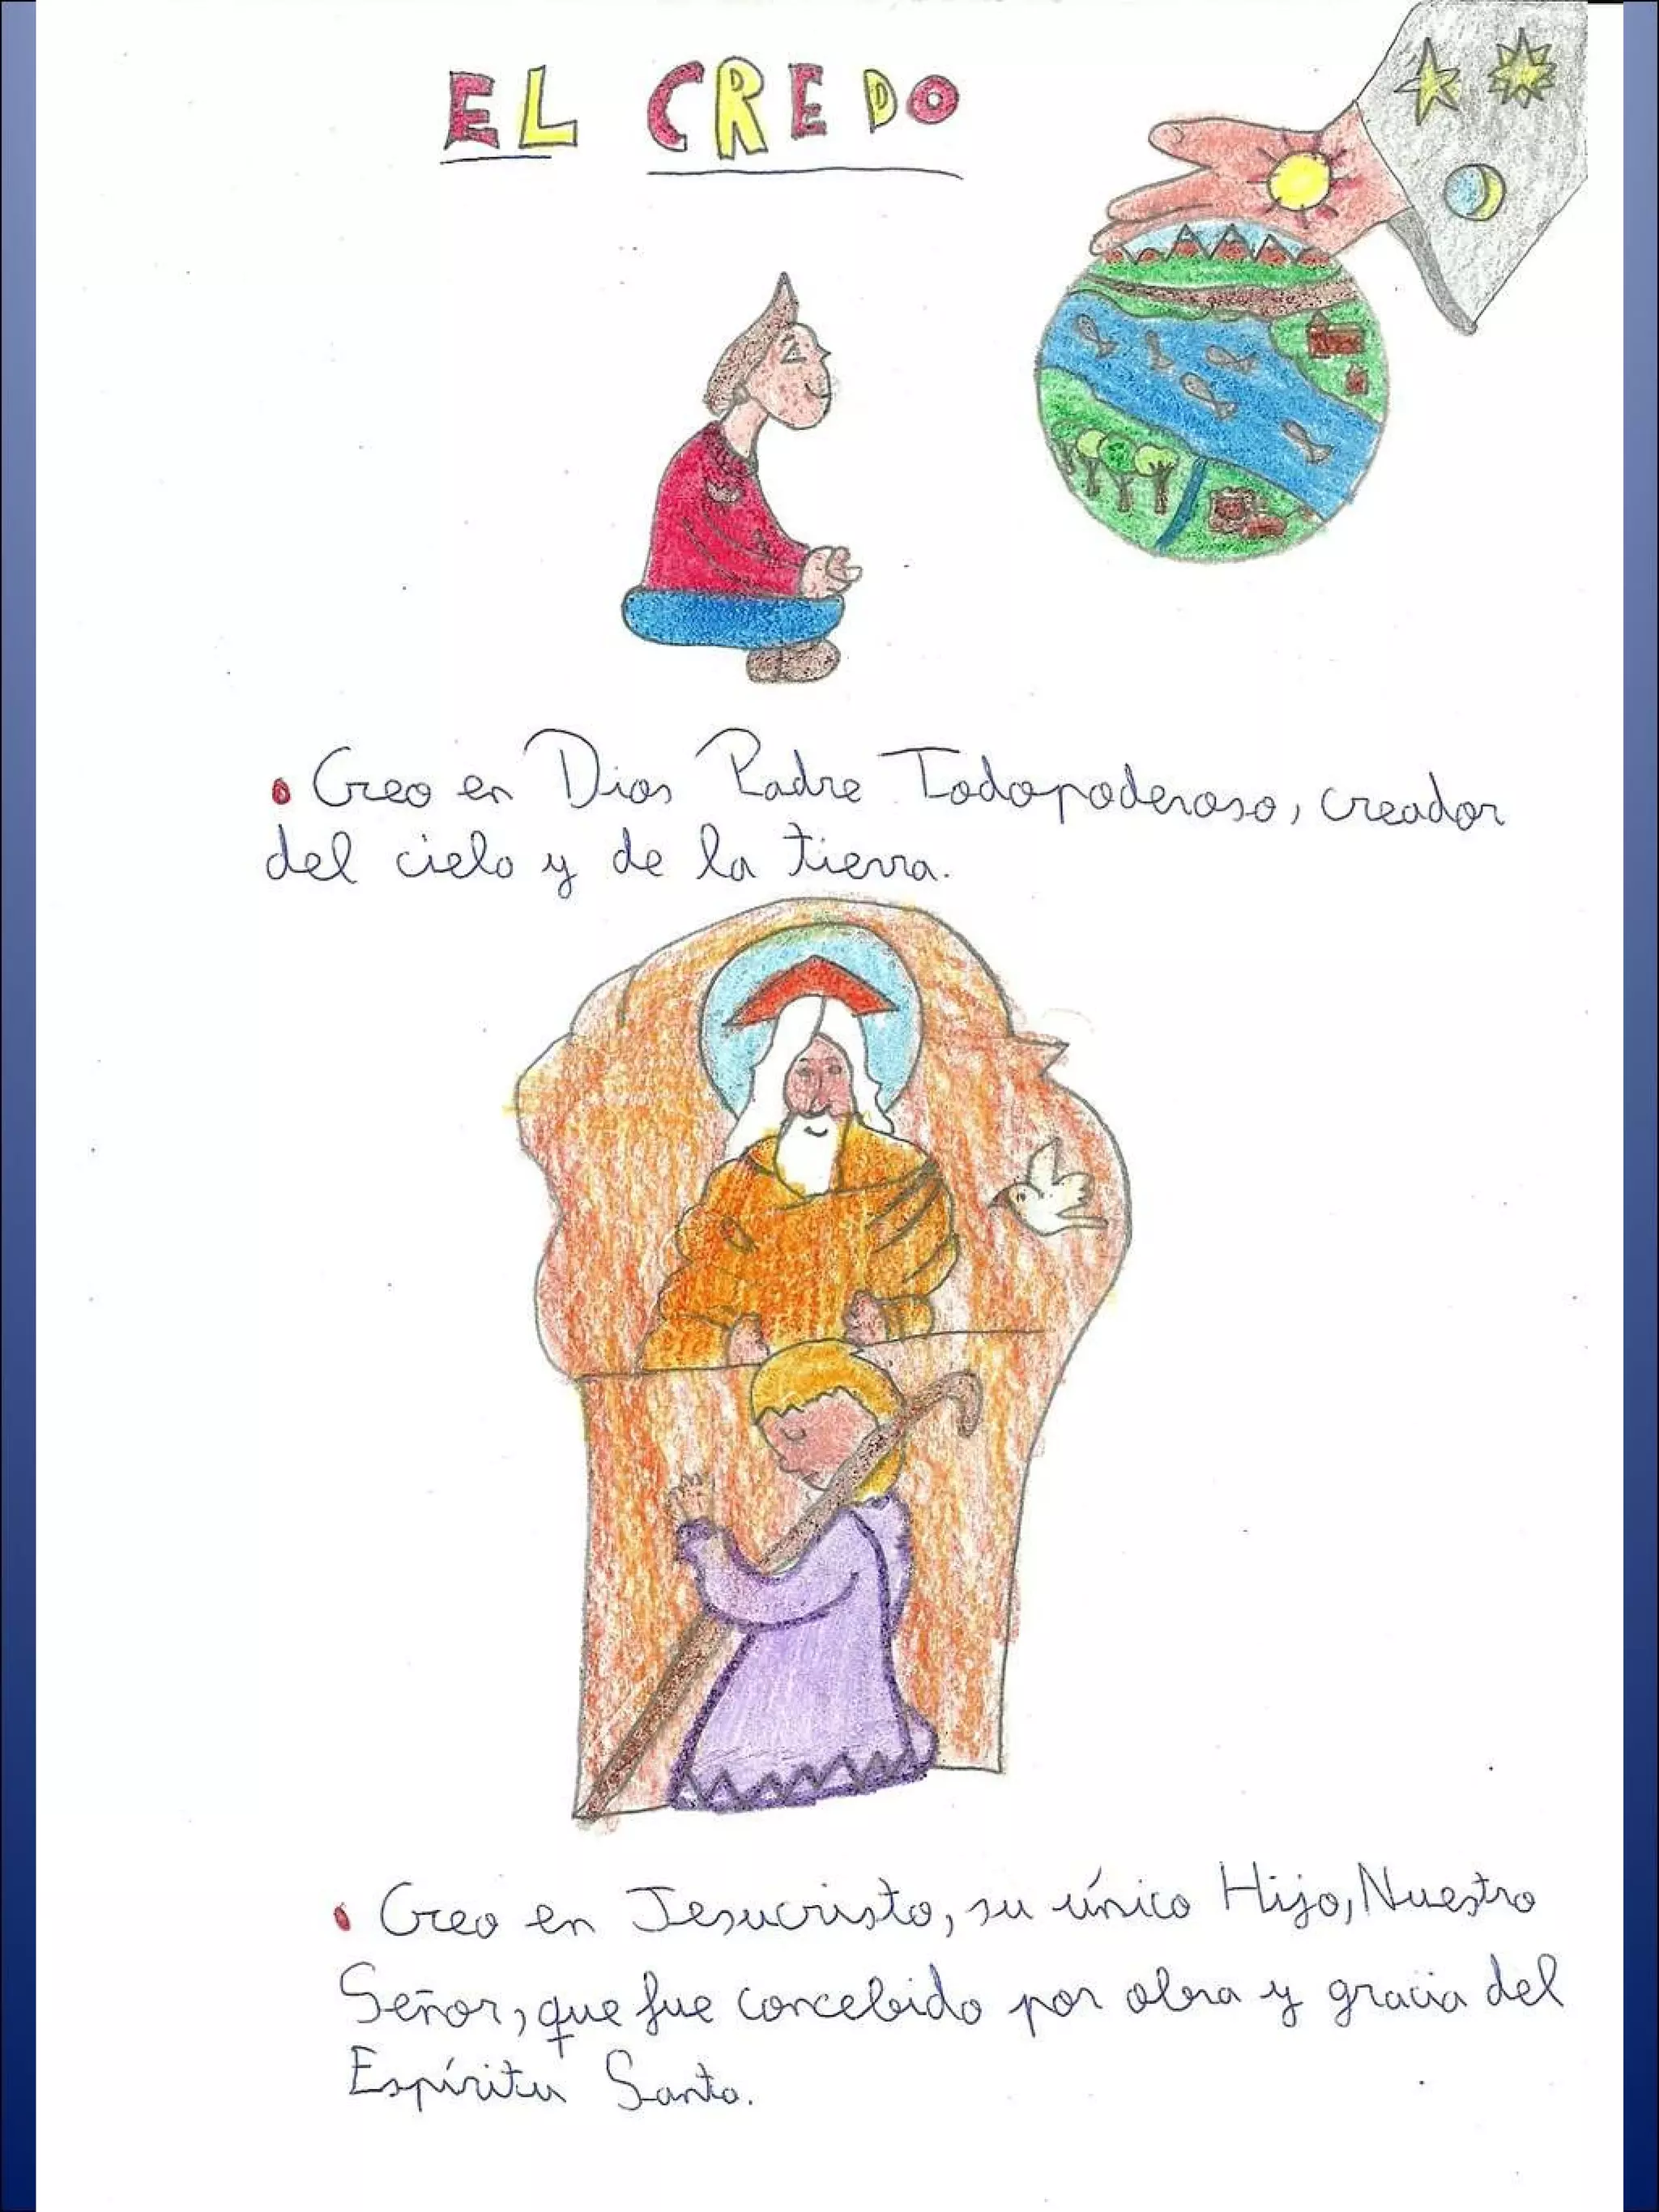 EL CREDO
• Creo en Dios Padre Todopoderoso, creador
del cielo y de la tierra.
• Creo en Jesucristo, su único Hijo, Nuestro
Señor, que fue concebido por obra y gracia del
Espíritu Santo.